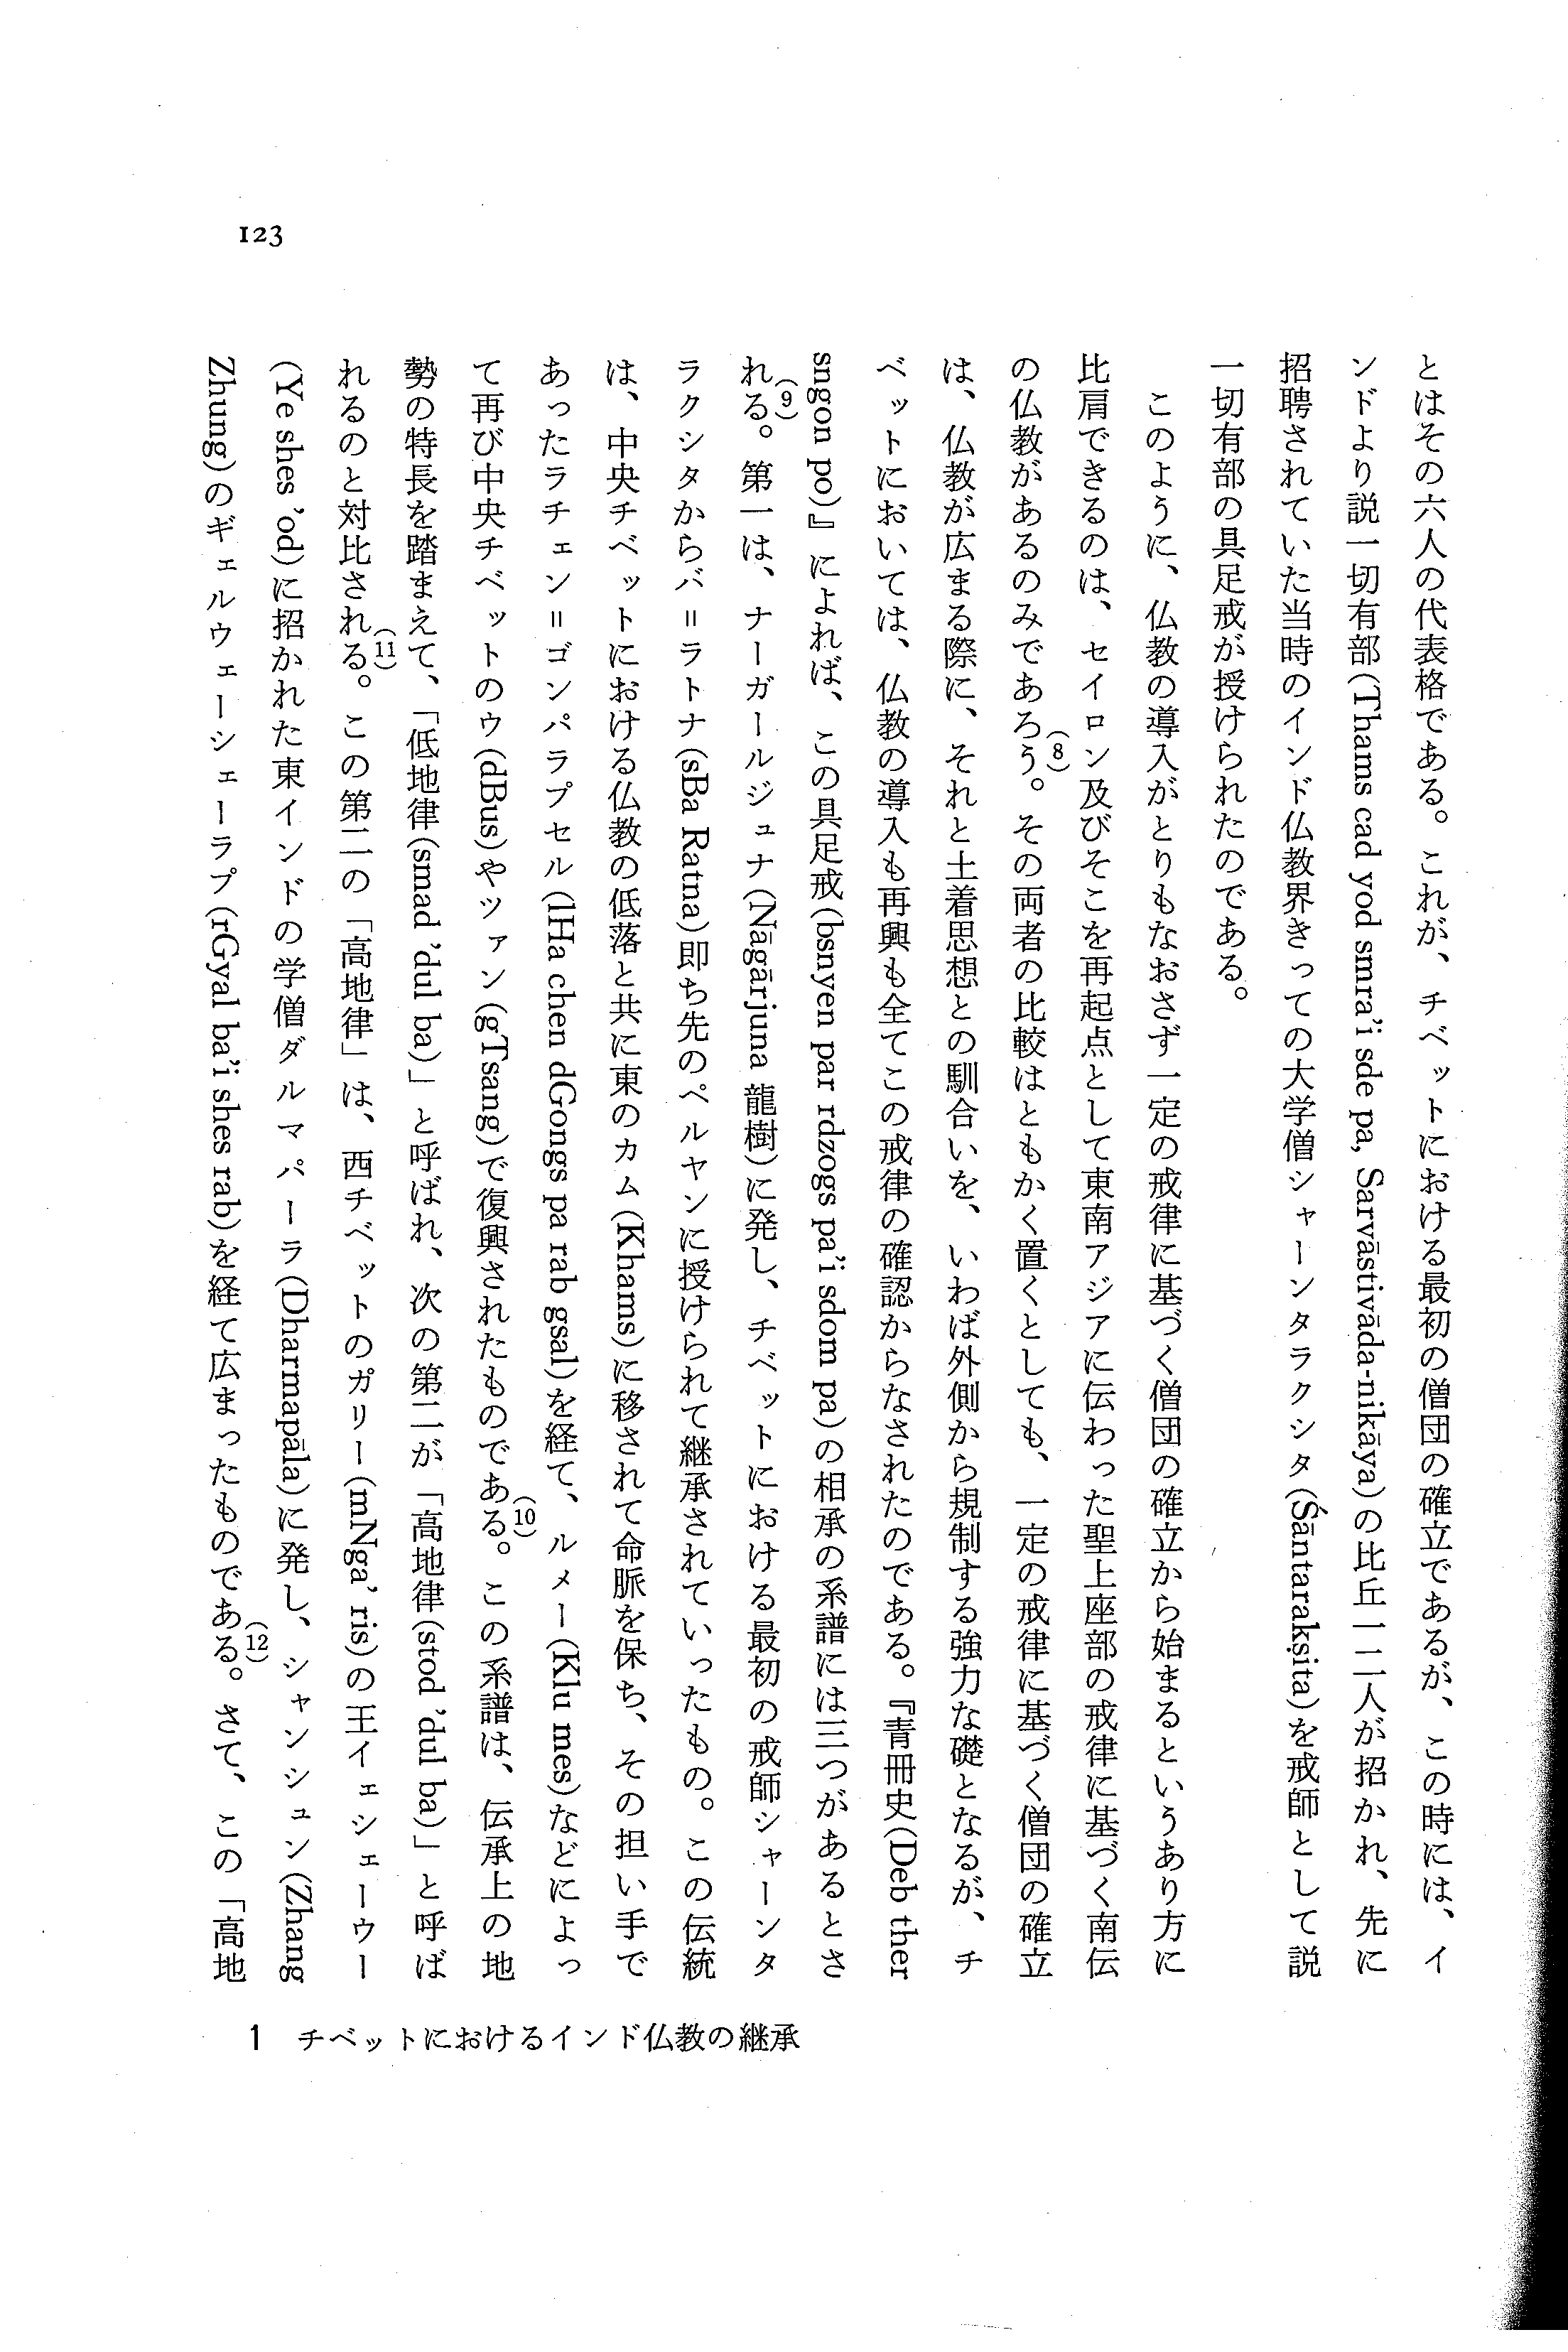 とはその六人の代表格である。これが、チベットにおける最初の僧団の確立であるが、この時には、イ
ンドより説一切有部(Thams cad yod smra'i sde pa, Sarvāstivāda-nikāya)の比丘一二人が招かれ、先に
招聘されていた当時のインド仏教界きっての大学僧シャーンタラクシタ(Śāntarakṣita)を戒師として説
一切有部の具足戒が授けられたのである。
このように、仏教の導入がとりもなおさず一定の戒律に基づく僧団の確立から始まるというあり方に
比肩できるのは、セイロン及びそこを再起点として東南アジアに伝わった聖上座部の戒律に基づく南伝
の仏教があるのみであろう(8)。その両者の比較はともかく置くとしても、一定の戒律に基づく僧団の確立
は、仏教が広まる際に、それと土着思想との馴合いを、いわば外側から規制する強力な礎となるが、チ
ベットにおいては、仏教の導入も再興も全てこの戒律の確認からなされたのである。『青冊史(Deb ther
sngon po)』によれば、この具足戒(bsnyen par rdzogs pa'i sdom pa)の相承の系譜には三つがあるとさ
れる(9)。第一は、ナーガールジュナ(Nāgārjuna 龍樹)に発し、チベットにおける最初の戒師シャーンタ
ラクシタからバ=ラトナ(sBa Ratna)即ち先のペルヤンに授けられて継承されていったもの。この伝統
は、中央チベットにおける仏教の低落と共に東のカム(Khams)に移されて命脈を保ち、その担い手で
あったラチェン=ゴンパラプセル(lHa chen dGongs pa rab gsal)を経て、ルメー(Klu mes)などによっ
て再び中央チベットのウ(dBus)やツァン(gTsang)で復興されたものである(10)。この系譜は、伝承上の地
勢の特長を踏まえて、「低地律(smad 'dul ba)」と呼ばれ、次の第二が「高地律(stod 'dul ba)」と呼ば
れるのと対比される(11)。この第二の「高地律」は、西チベットのガリー(mNga' ris)の王イェシェーウー
(Ye shes 'od)に招かれた東インドの学僧ダルマパーラ(Dharmapāla)に発し、シャンシュン(Zhang
Zhung)のギェルウェーシェーラプ(rGyal ba'i shes rab)を経て広まったものである(12)。さて、この「高地
1 チベットにおけるインド仏教の継承
123